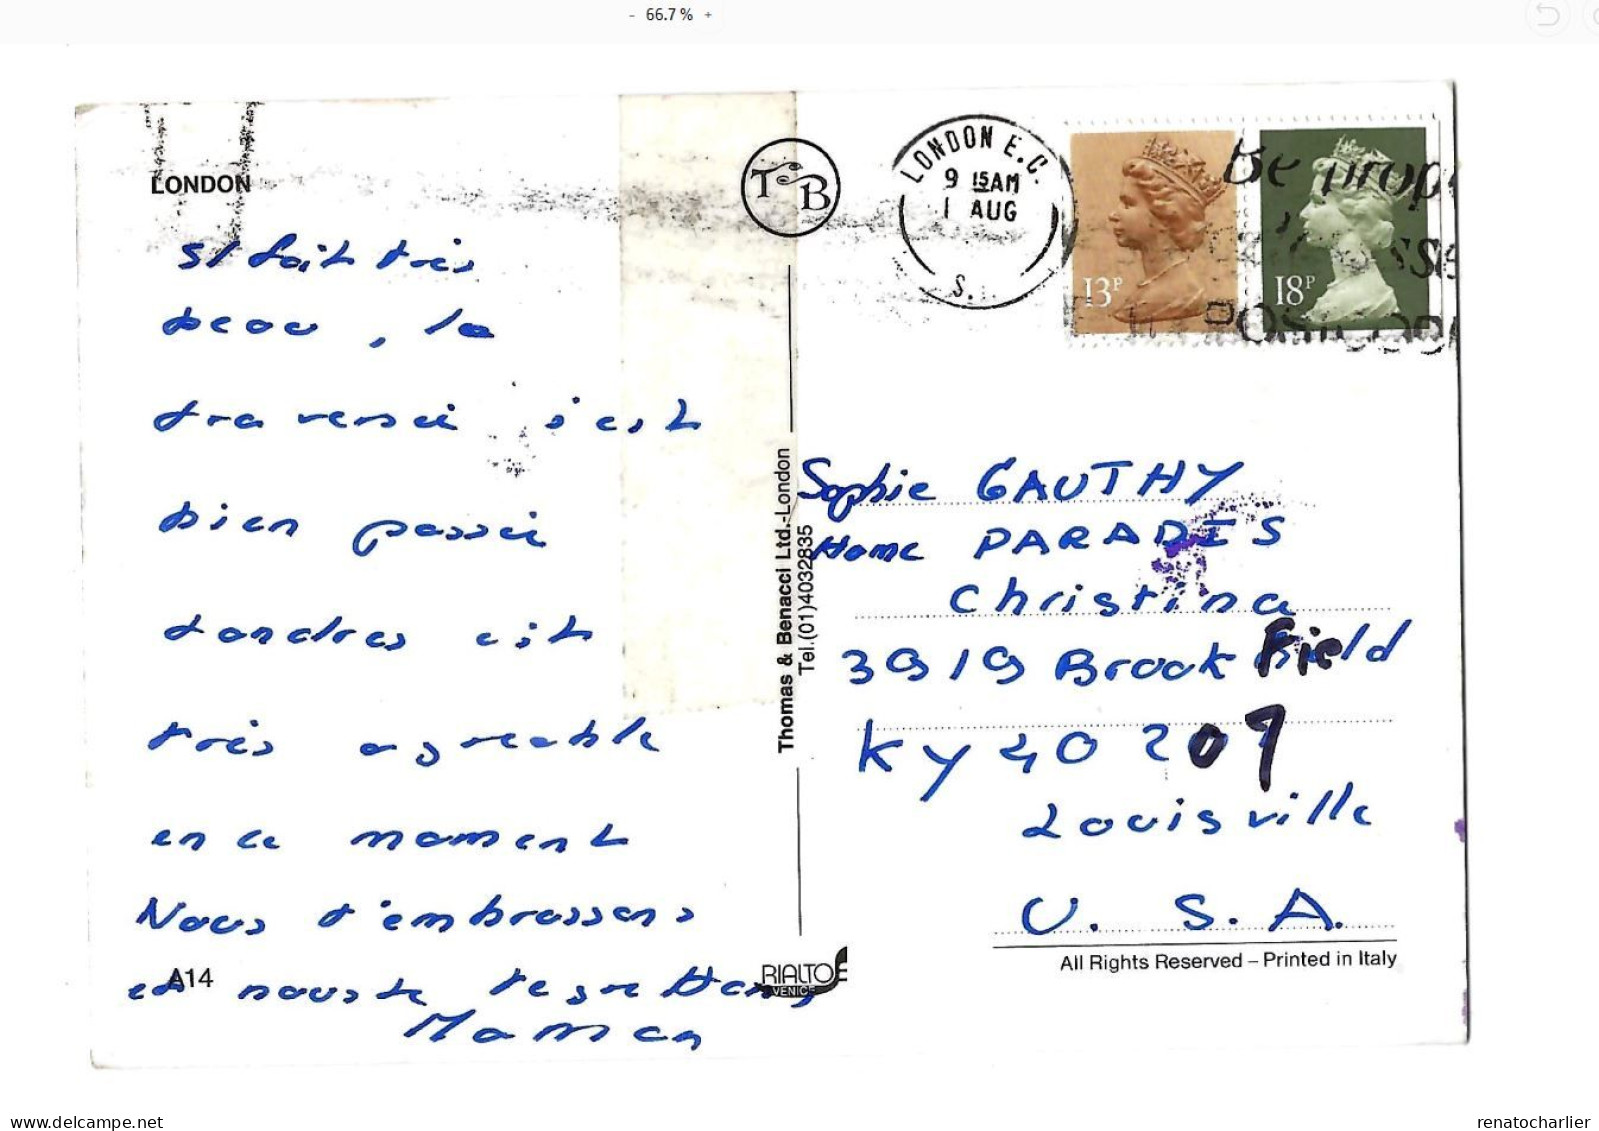 66.7 %
LONDON
T B
LONDON E.C.
9 15AM
1 AUG
S.
13P
18P
Be prope
POSTCODE
Il fait très
beau, la
traversée s'est
bien passée
Londres est
très agréable
en ce moment
Nous t'embrassons
et nous te regrettons,
Maman
A14
Thomas & Benacci Ltd.-London
Tel.(01)4032835
RIALTO
VENICE
Sophie GAUTHY
Home PARADIS
Christina
3919 Brook Field
KY 40 209
Louisville
U. S. A.
All Rights Reserved – Printed in Italy
delcampe.net
renatocharlier